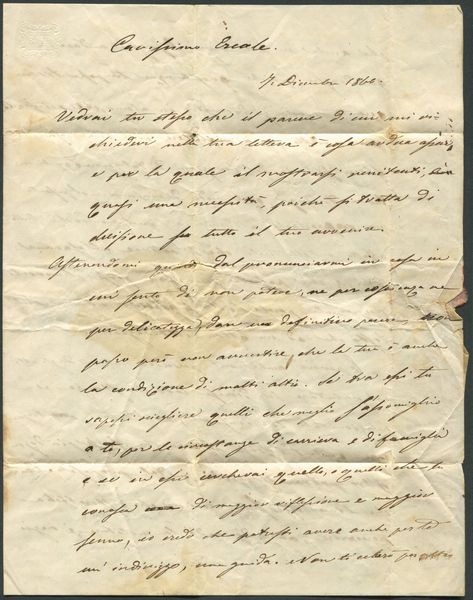 Carissimo Ercole.
7. Dicembre 1866.
Vedrai tu stesso che il parere di cui mi ri
chiedevi nella tua lettera è cosa ardua assai,
e per la quale il mostrarsi renitenti, è
quasi una necessità, poichè si tratta di
decisione su tutto il tuo avvenire.
Astenendomi quindi dal pronunciarmi in cosa in
cui sento di non potere, ne per coscienza ne
per delicatezza, dare un definitivo parere, non
posso però non avvertire, che la tua è anche
la condizione di molti altri. Se tra essi tu
sapessi scegliere quelli che meglio s'assomiglino
a te, per le circostanze di carriera e di famiglia
e se in essi cercherai quello, o quelli che tu
conosca di maggior riflessione e maggior
senno, io credo che potresti avere anche per te
un indirizzo, una guida. Non ti celerò per